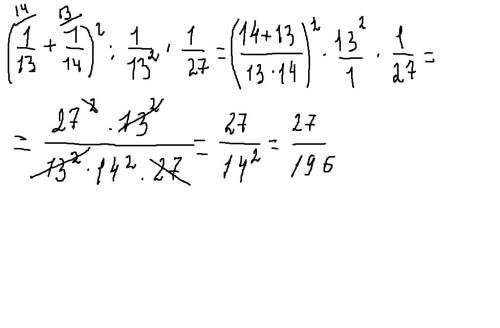 (1/13 + 1/14)² : 1/13² · 1/27 = ((14+13)/(13·14))² · 13²/1 · 1/27 =
= (27² · 13²)/(13² · 14² · 27) = 27/14² = 27/196